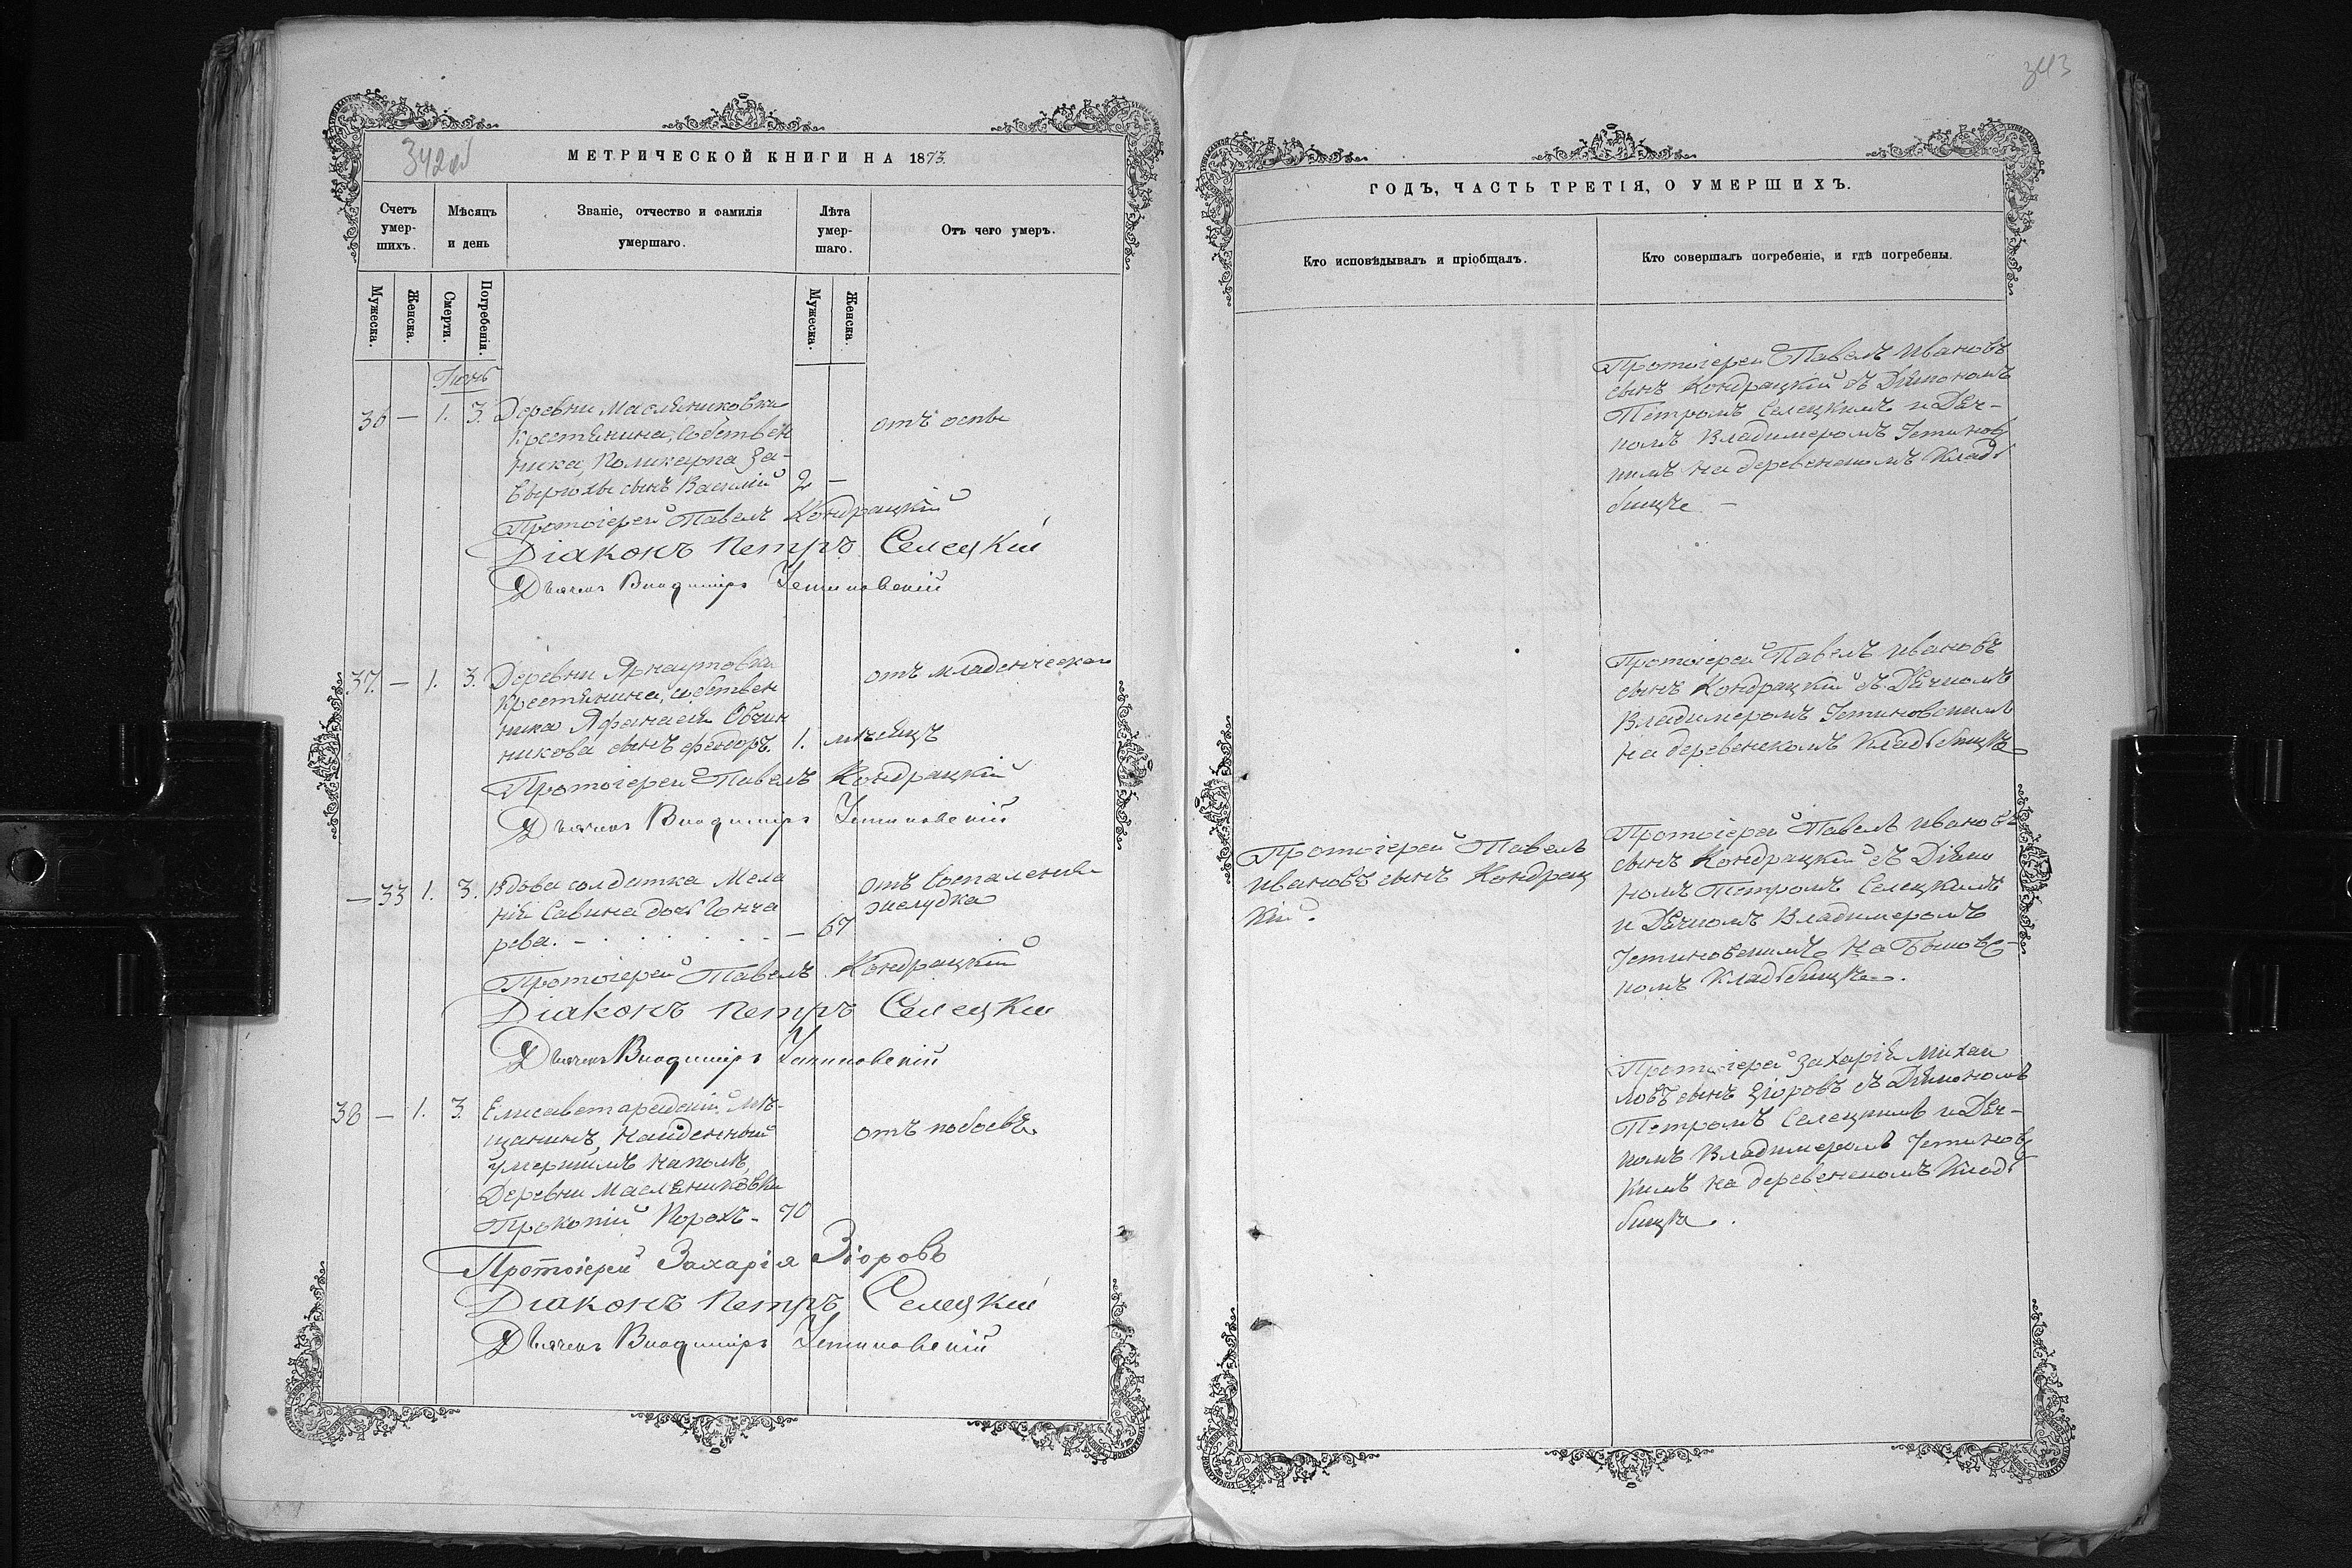 342об
МЕТРИЧЕСКОЙ КНИГИ НА 1873
Счетъ умер-шихъ.
Мѣсяцъ и день
Званіе, отчество и фамилія умершаго.
Лѣта умер-шаго.
Отъ чего умеръ.
Мужеска.
Женска.
Смерти.
Погребенія.
Мужеска.
Женска.
36 — 1. 3. Деревни Маслениковки
отъ оспы
крестьянина, собствен
ника, Поликарпа За-
сынъ Василій 2 —
Протоіерей Павелъ Кондрацкій
Діаконъ Петръ Селецкій
Дьячекъ Владиміръ Устиновскій
37. — 1. 3. Деревни Арнаутовки
отъ младенческаго
крестьянина, собствен
ника Афанасія Овчин
никова сынъ Феодоръ. 1. мѣсяцъ
Протоіерей Павелъ Кондрацкій
Дьячекъ Владиміръ Устиновскій
— 33 1. 3. Вдова солдатка Мела
отъ воспаленія
нія Савина дочь Гонча
желудка
рева. — — 67
Протоіерей Павелъ Кондрацкій
Діаконъ Петръ Селецкій
Дьячекъ Владиміръ Устиновскій
38 — 1. 3. Елисаветградскій мѣ-
щанинъ, найденный
отъ побоевъ
умершимъ на полѣ,
Деревни Маслениковки
Прокопій Порохъ - 70
Протоіерей Захарія Зіоровъ
Діаконъ Петръ Селецкій
Дьячекъ Владиміръ Устиновскій
343
ГОДЪ, ЧАСТЬ ТРЕТІЯ, О УМЕРШИХЪ.
Кто исповѣдывалъ и пріобщалъ.
Кто совершалъ погребеніе, и гдѣ погребены.
Протоіерей Павелъ Ивановъ
сынъ Кондрацкій съ Діакономъ
Петромъ Селецкимъ и Дяч-
комъ Владимеромъ Устиновс
кимъ на деревенскомъ Клад
бищѣ —
Протоіерей Павелъ Ивановъ
сынъ Кондрацкій съ Дячкомъ
Владимеромъ Устиновскимъ
на деревенскомъ Кладбищѣ
Протоіерей Павелъ
Ивановъ сынъ Кондрац
кій.
Протоіерей Павелъ Ивановъ
сынъ Кондрацкій съ Діако
номъ Петромъ Селецкимъ
и Дячкомъ Владимеромъ
Устиновскимъ на
комъ Кладбищѣ.
Протоіерей Захарія Михаи
ловъ сынъ Зіоровъ съ Діакономъ
Петромъ Селецкимъ и Дяч-
комъ Владимеромъ Устиновс
кимъ на деревенскомъ Клад
бищѣ.